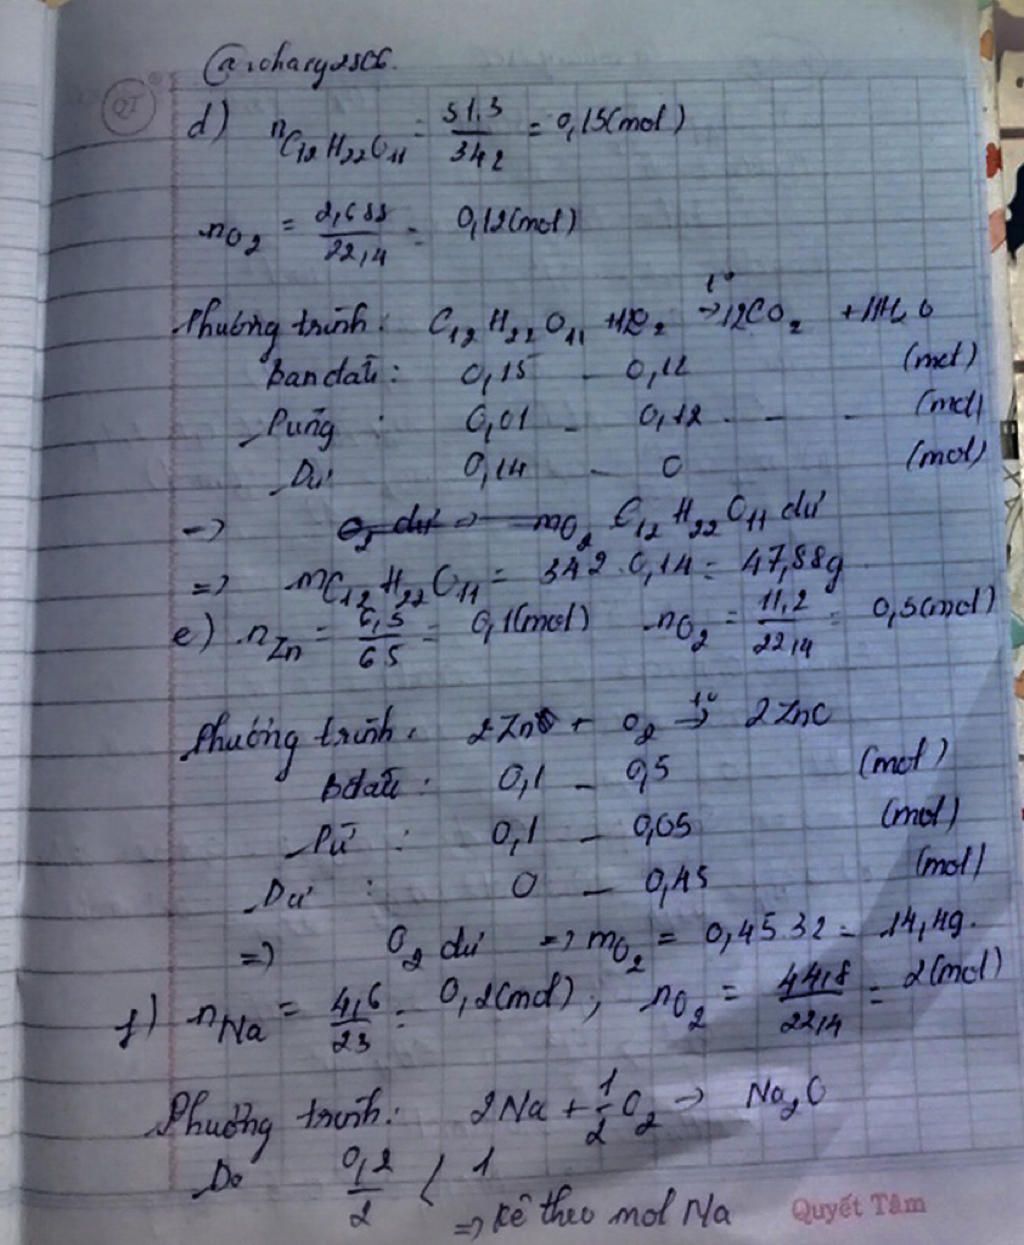 @rchary2806.
d) nC12H22O11 = 51,3/342 = 0,15(mol)
nO2 = 2,688/22,4 = 0,12(mol)
Phương trình: C12H22O11 + 12O2 →t° 12CO2 + 11H2O
Ban đầu: 0,15 - 0,12 (mol)
Pứng : 0,01 - 0,12 - - (mol)
Dư 0,14 - 0 (mol)
→ C12H22O11 dư
=> mC12H22O11 = 342.0,14 = 47,88g
e) nZn = 6,5/65 = 0,1(mol) nO2 = 11,2/22,4 = 0,5(mol)
Phương trình: 2Zn + O2 →t° 2ZnO
Bđầu : 0,1 - 0,5 (mol)
Pư : 0,1 - 0,05 (mol)
Dư : 0 - 0,45 (mol)
=> O2 dư => mO2 = 0,45.32 = 14,4g.
f) nNa = 4,6/23 = 0,2(mol), nO2 = 44,8/22,4 = 2(mol)
Phương trình: 2Na + 1/2O2 → Na2O
Do 0,2/2 < 1
=> Kê theo mol Na
Quyết Tâm